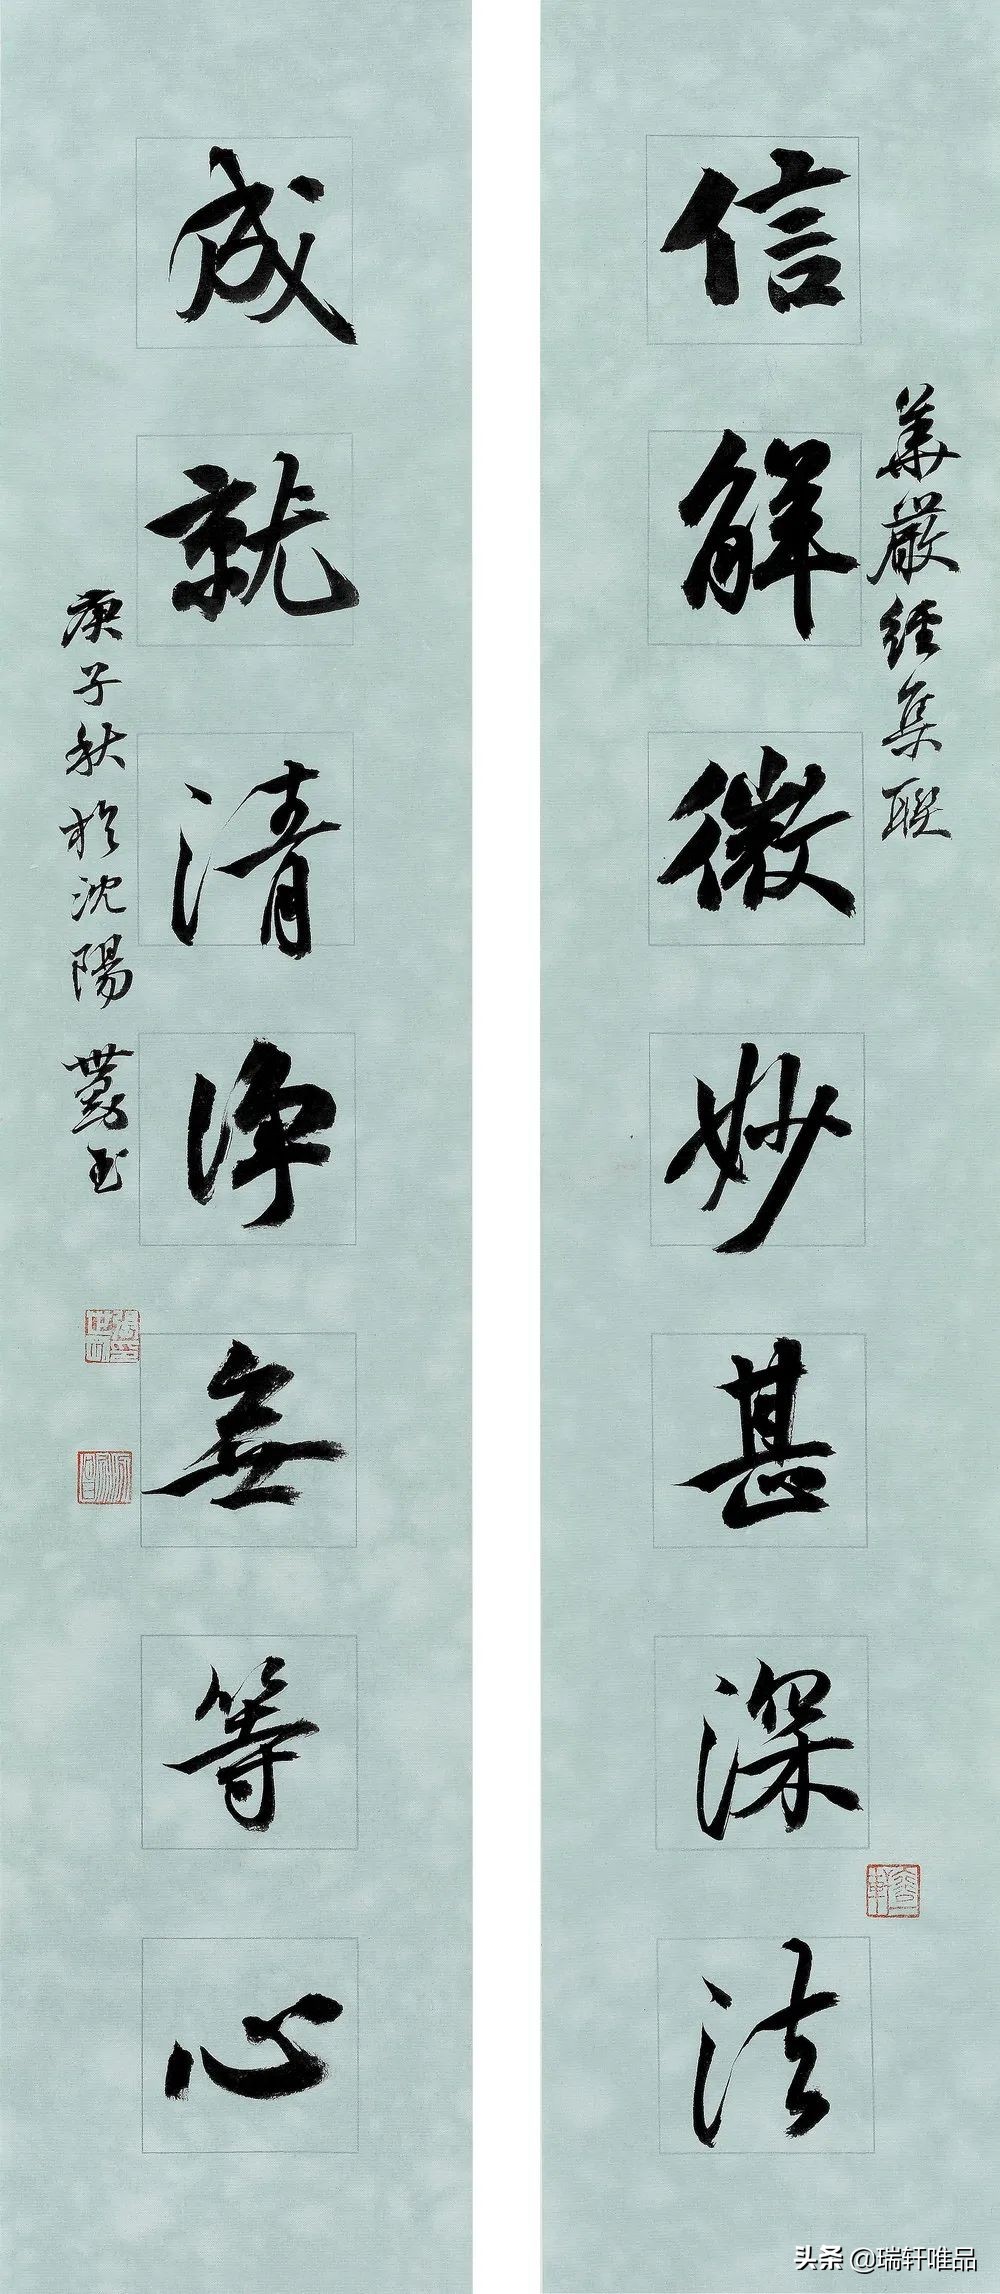 華嚴經集聯
信解微妙甚深法
成就清淨無等心
庚子秋於沈陽
世剛書
头条 @瑞轩唯品